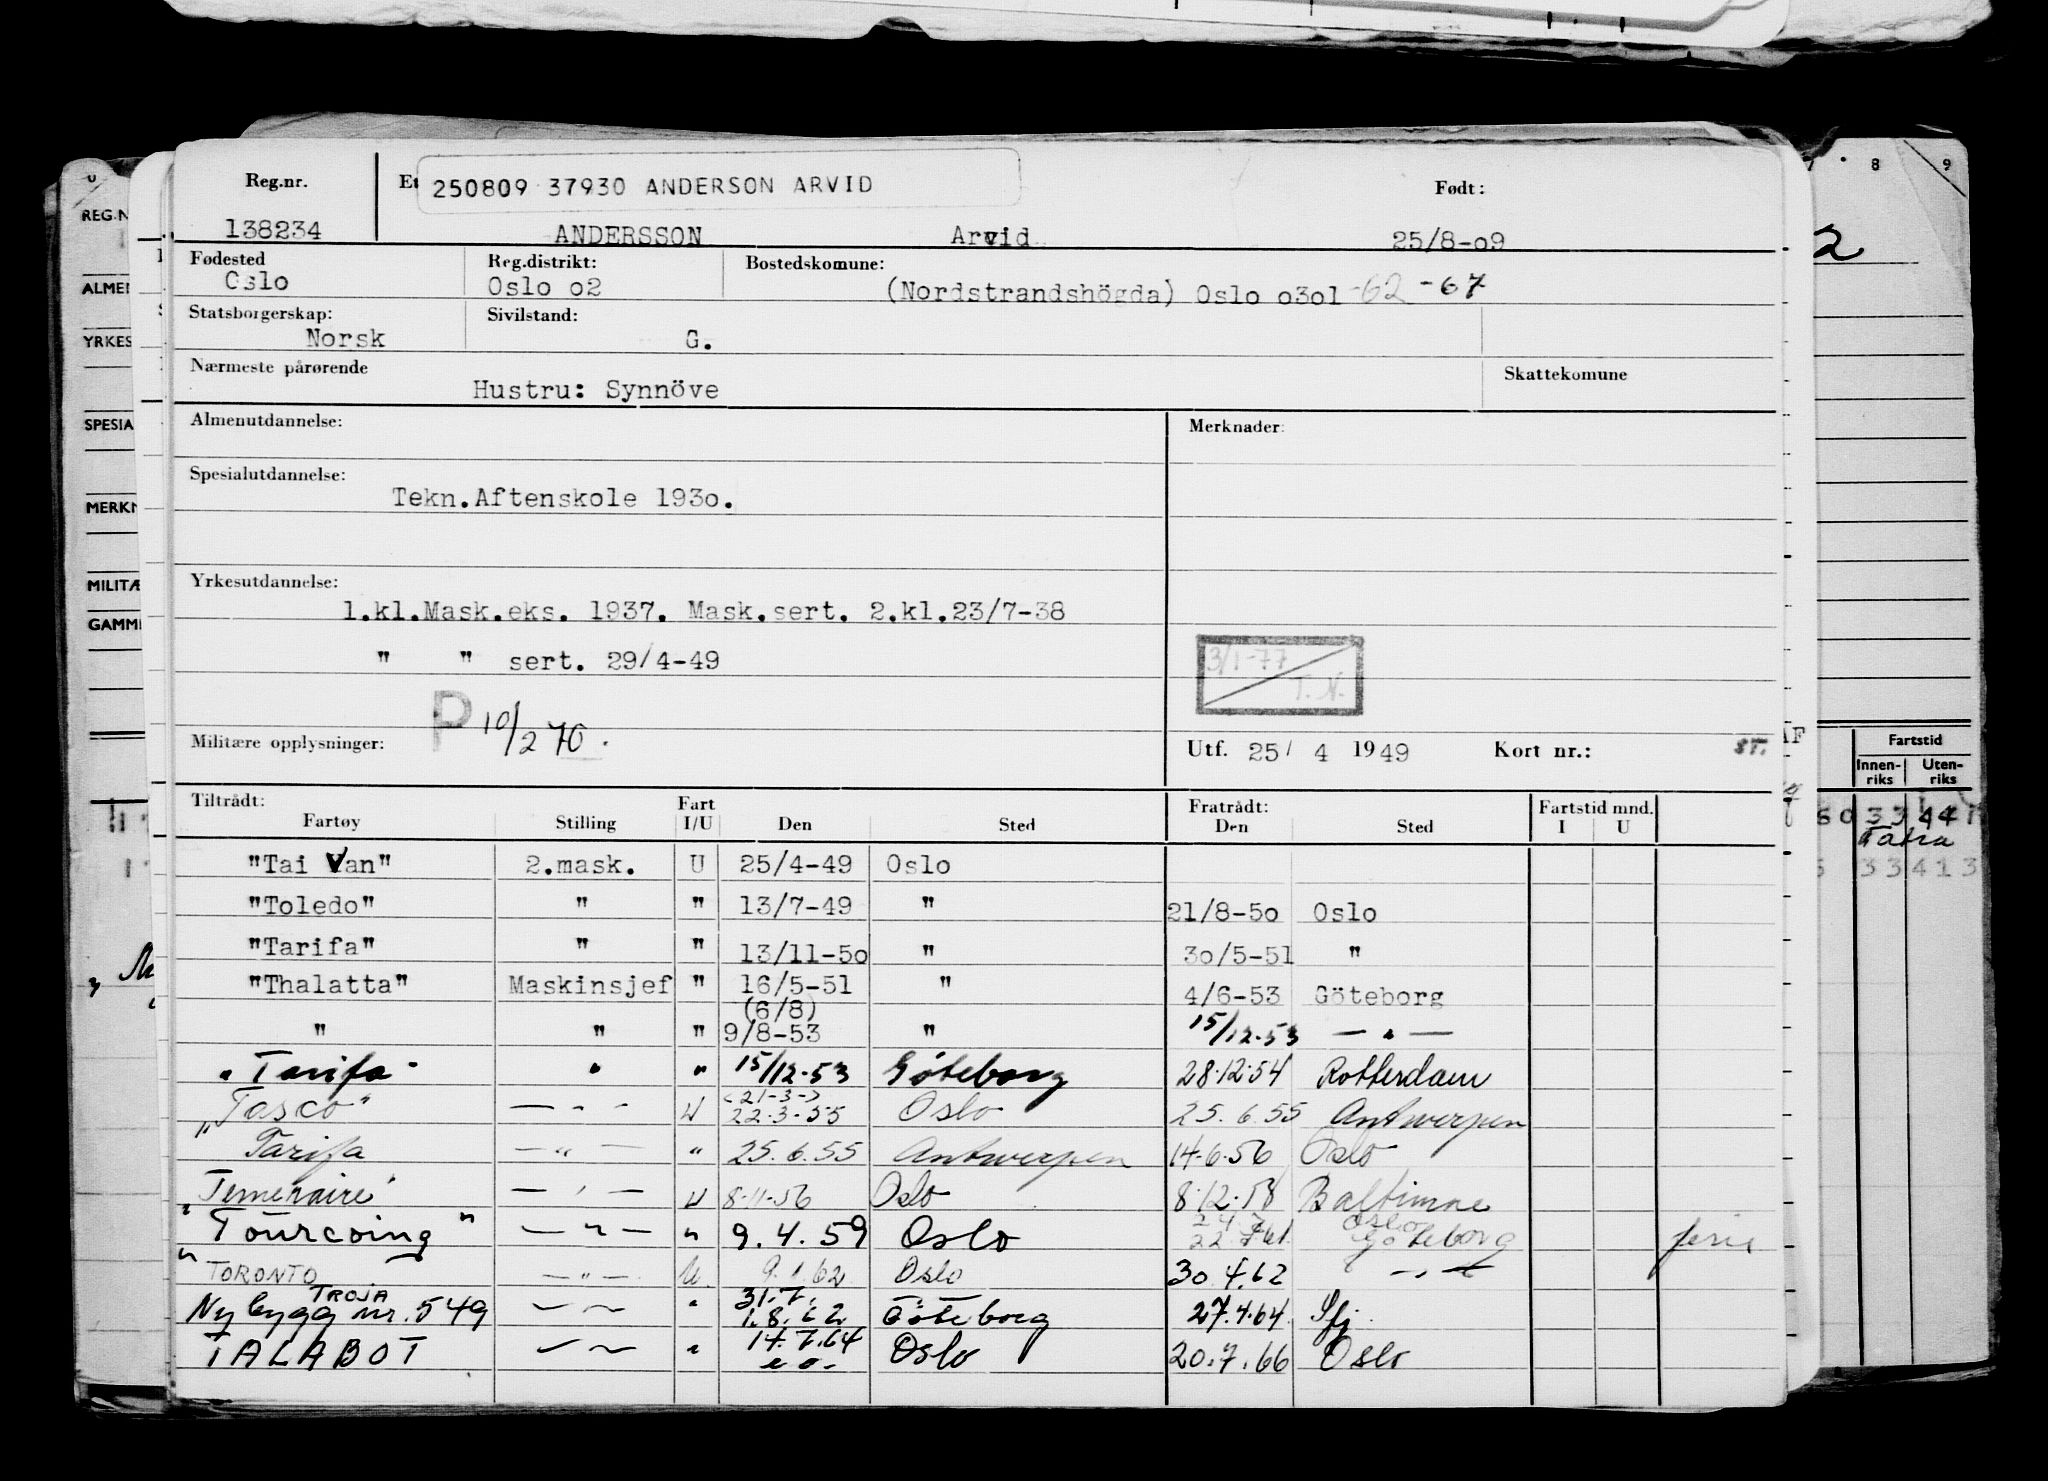 Reg.nr. Et 250809 37930 ANDERSON ARVID Født:
138234 ANDERSSON Arvid 25/8-o9
Fødested Reg.distrikt: Bostedskomune:
Oslo Oslo o2 (Nordstrandshögda) Oslo o3o1 -62 -67
Statsborgerskap: Sivilstand:
Norsk G.
Nærmeste pårørende Skattekomune
Hustru: Synnöve
Almenutdannelse: Merknader:
Spesialutdannelse:
Tekn.Aftenskole 193o.
Yrkesutdannelse:
1.kl.Mask.eks. 1937. Mask.sert. 2.kl.23/7-38
" " sert. 29/4-49
3/1-77
T.N.
P 10/2 70.
Militære opplysninger: Utf. 25/ 4 1949 Kort nr.: ST.
Tiltrådt: Fart Fratrådt: Fartstid mnd.
Fartøy Stilling I/U Den Sted Den Sted I U
"Tai Van" 2.mask. U 25/4-49 Oslo
"Toledo" " " 13/7-49 " 21/8-5o Oslo
"Tarifa" " " 13/11-5o " 3o/5-51 "
"Thalatta" Maskinsjef " 16/5-51 " 4/6-53 Göteborg
(6/8)
" " " 9/8-53 " 15/12-53 — " —
"Tarifa" " " 15/12-53 Göteborg 28.12.54 Rotterdam
(21-3-)
"Tasco" — " — U 22.3.55 Oslo 25.6.55 Antwerpen
Tarifa — " — " 25.6.55 Antwerpen 14.6.56 Oslo
"Temeraire" — " — U 8.11.56 Oslo 8.12.58 Baltimore
24 Oslo
"Tourcoing" — " — " 9.4.59 Oslo 22 61 Göteborg ferie
"TORONTO — " — U. 9.1.62 Oslo 30.4.62 — " —
TROJA 31.7.
Nybygg nr. 549 — " — " 1.8.62 Göteborg 27.4.64 Sfj.
14.7.64
TALABOT — " — " Oslo 20.7.66 Oslo
REG.N
ALMEN
YRKES
SPESIA
MERKN
MILITÆ
GAMME
8 9
2
Fartstid
Innen-riks Uten-riks